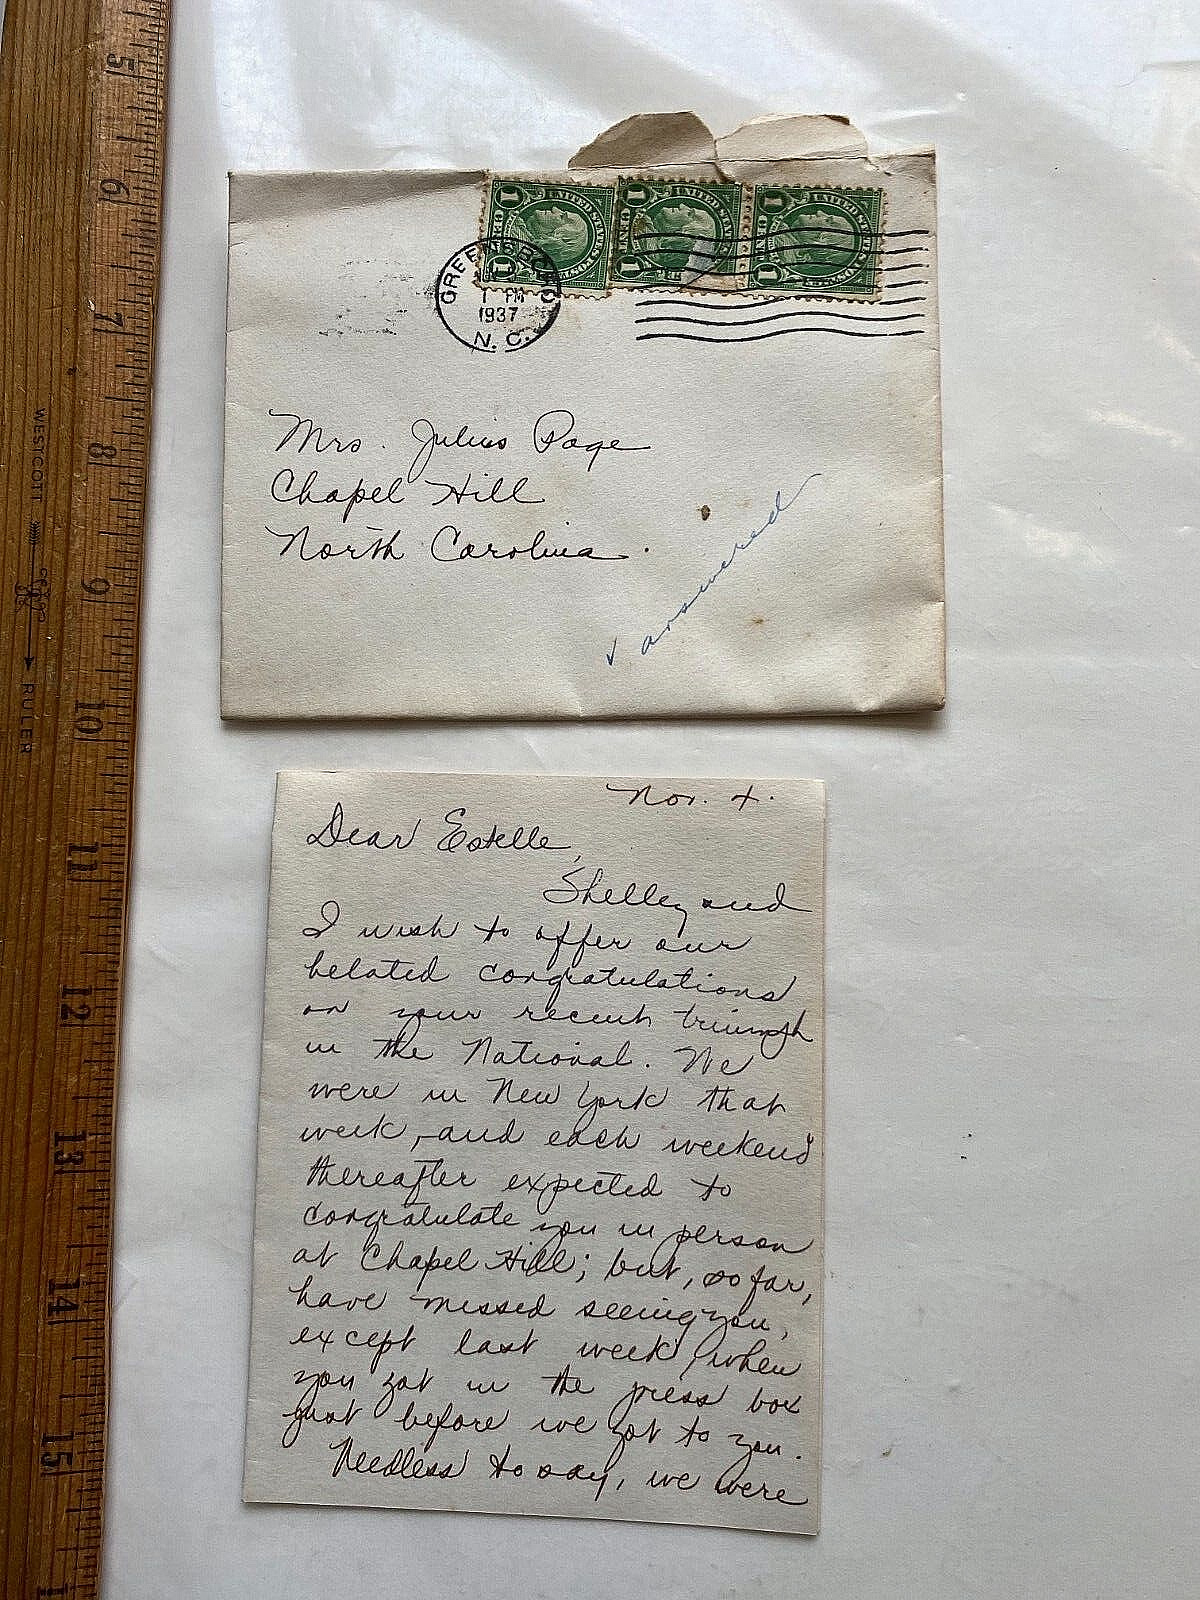 5
6
7
8
9
10
11
12
13
14
15
WESTCOTT
RULER
1 UNITED STATES POSTAGE 1
1 UNITED STATES 1
1 UNITED STATES POSTAGE 1
GREENSBORO
1 PM
1937
N.C.
Mrs. Julius Page
Chapel Hill
North Carolina.
✓ answered
Nov. 4.
Dear Estelle,
Shelley and
I wish to offer our
belated congratulations
on your recent triumph
in the National. We
were in New York that
week, and each weekend
thereafter expected to
congratulate you in person
at Chapel Hill; but, so far,
have missed seeing you,
except last week, when
you got in the press box
just before we got to you.
Needless to say, we were